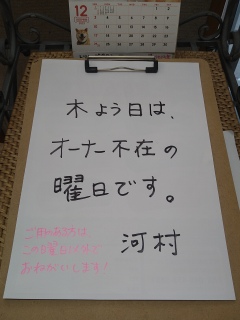 12
木よう日は、
オーナー不在の
曜日です。
河村
ご用のある方は
この曜日以外で
おねがいします!